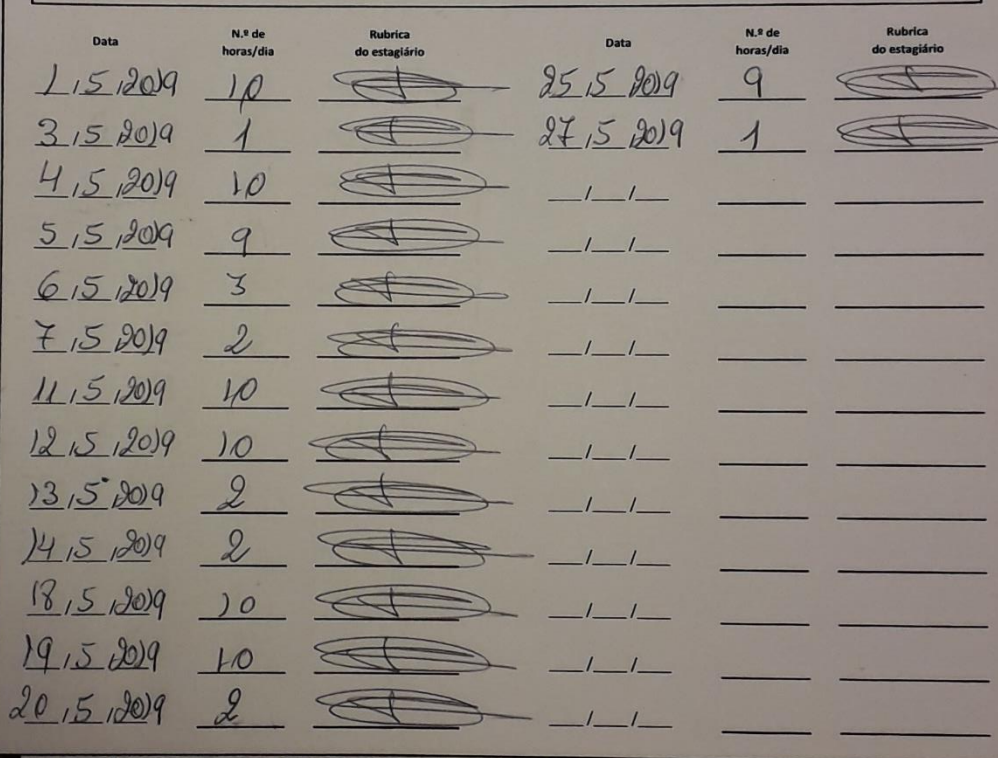 Data N.º de horas/dia Rubrica do estagiário Data N.º de horas/dia Rubrica do estagiário
1/5/2019 10 25/5/2019 9
3/5/2019 1 27/5/2019 1
4/5/2019 10 __/__/__
5/5/2019 9 __/__/__
6/5/2019 3 __/__/__
7/5/2019 2 __/__/__
11/5/2019 10 __/__/__
12/5/2019 10 __/__/__
13/5/2019 2 __/__/__
14/5/2019 2 __/__/__
18/5/2019 10 __/__/__
19/5/2019 10 __/__/__
20/5/2019 2 __/__/__